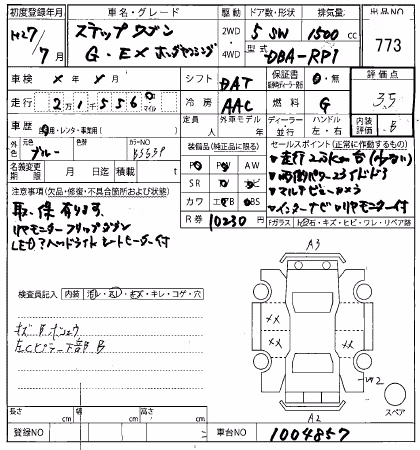 初度登録年月 車名・グレード 駆動 ドア数・形状 排気量 出品NO
H27/7月 ステップワゴン 2WD 4WD 5 SW 1500 cc 773
G・EX ホンダセンシング 型式 DBA-RP1
車検 年 月 シフト DAT 保証書 有・無 評価点
走行 21556 km マイル 冷房 AAC 燃料 G 3.5
車歴 自家用・レンタ・事業用( ) 定員 人 外車モデル 年 ディーラー 並行 ハンドル 左・右 内装 B
外色 元色 ブルー 色替 カラーNO B553P 装備品(純正品に限る) セールスポイント(正常に作動するもの)
名義変更期限 月 日迄 積載量 t PS PW AW 走行2万km台(少ない)
SR ナビ TV 両側パワースライドドア
注意事項(欠品・修復・不具合箇所および状態) カワ エアB ABS マルチビューカメラ
取・保有ります R券 10230円 インターナビ リヤモニター付
リヤモニター フリップダウン Fガラス 飛石・キズ・ヒビ・ワレ・リペア跡
LEDヘッドライト シートヒーター付
A3
検査員記入 内装 汚レ・スレ・キズ・キレ・コゲ・穴
キズ 凹 ホシュウ
左Cピラー下部 B
XX XX
XX XX
W2
スペア
A2
長さ cm 幅 cm 高さ cm
登録NO 車台NO 1004857